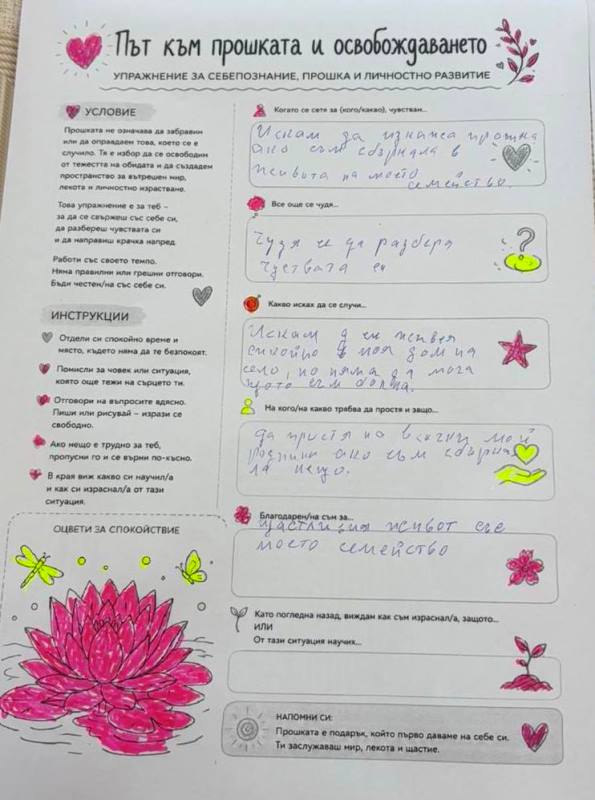 Път към прошката и освобождаването
УПРАЖНЕНИЕ ЗА СЕБЕПОЗНАНИЕ, ПРОШКА И ЛИЧНОСТНО РАЗВИТИЕ
УСЛОВИЕ
Прошката не означава да забравим
или да оправдаем това, което се е
случило. Тя е избор да се освободим
от тежестта на обидата и да създадем
пространство за вътрешен мир,
лекота и личностно израстване.
Това упражнение е за теб –
за да се свържеш със себе си,
да разбереш чувствата си
и да направиш крачка напред.
Работи със своето темпо.
Няма правилни или грешни отговори.
Бъди честен/на със себе си.
ИНСТРУКЦИИ
Отдели си спокойно време и
място, където няма да те безпокоят.
Помисли за човек или ситуация,
която още тежи на сърцето ти.
Отговори на въпросите вдясно.
Пиши или рисувай – изрази се
свободно.
Ако нещо е трудно за теб,
пропусни го и се върни по-късно.
В края виж какво си научил/а
и как си израснал/а от тази
ситуация.
ОЦВЕТИ ЗА СПОКОЙСТВИЕ
Когато се сетя за (кого/какво), чувствам...
Искам да изкажа прошка
ако съм сбъркала в
живота на моето
семейство.
Все още се чудя...
Чудя се да разбера
чуствата си
?
Какво исках да се случи...
Искам да си живея
спокойно в моя дом на
село, но няма да мога
щото съм болна.
На кого/на какво трябва да простя и защо...
Да простя на всички мои
роднини ако съм сбърка
ла нещо.
Благодарен/на съм за...
щастливия живот със
моето семейство
Като погледна назад, виждам как съм израснал/а, защото...
ИЛИ
От тази ситуация научих...
НАПОМНИ СИ:
Прошката е подарък, който първо даваме на себе си.
Ти заслужаваш мир, лекота и щастие.